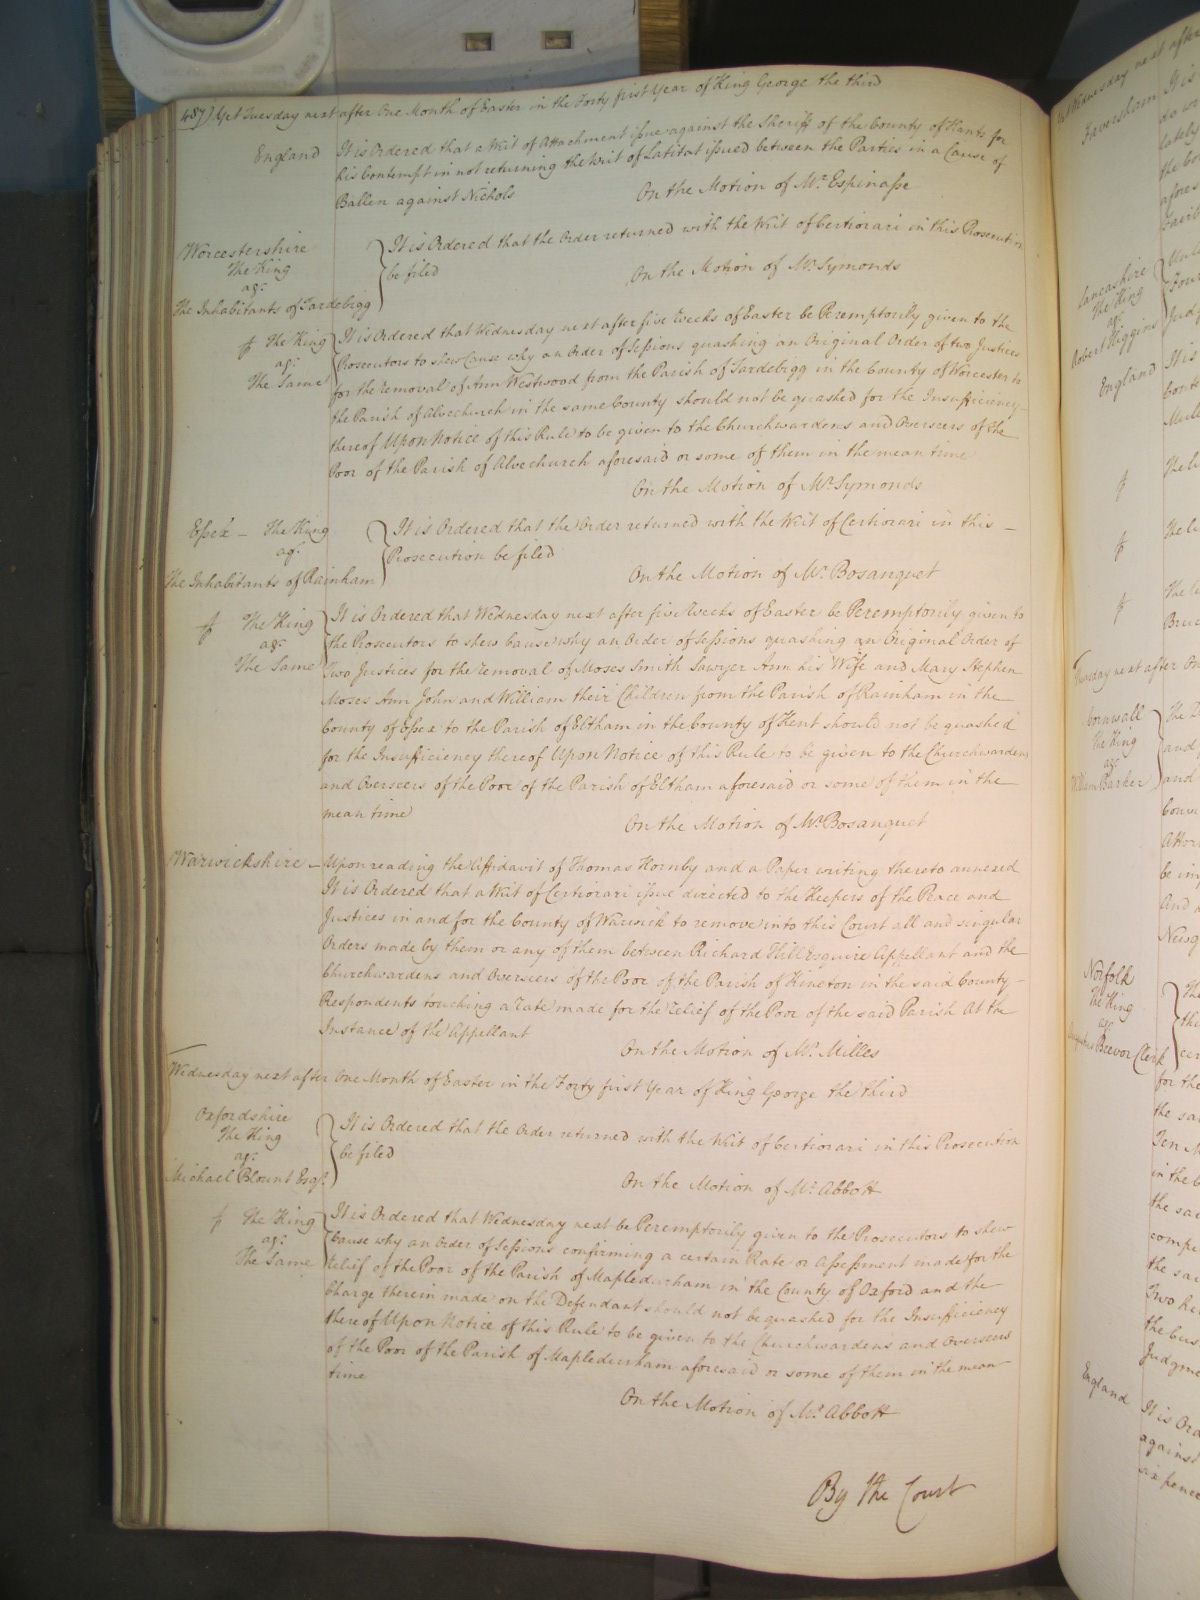 487) Yet Tuesday next after One Month of Easter in the Forty first Year of King George the third
England It is Ordered that a Writ of Attachment issue against the Sheriff of the County of Hants for
his Contempt in not returning the Writ of Latitat issued between the Parties in a Cause of
Ballen against Nichols
On the Motion of Mr. Espinasse
Worcestershire
The King
agt.
The Inhabitants of Tardebigg
It is Ordered that the Order returned with the Writ of Certiorari in this Prosecution
be filed
On the Motion of Mr. Symonds
The King
agt.
The Same
It is Ordered that Wednesday next after five Weeks of Easter be Peremptorily given to the
Prosecutors to shew Cause why an Order of Sessions quashing an Original Order of two Justices
for the Removal of Ann Westwood from the Parish of Tardebigg in the County of Worcester to
the Parish of Alvechurch in the same County should not be quashed for the Insufficiency
thereof Upon Notice of this Rule to be given to the Churchwardens and Overseers of the
Poor of the Parish of Alvechurch aforesaid or some of them in the mean time
On the Motion of Mr. Symonds
Essex – The King
agt.
The Inhabitants of Rainham
It is Ordered that the Order returned with the Writ of Certiorari in this –
Prosecution be filed
On the Motion of Mr. Bosanquet
The King
agt.
The Same
It is Ordered that Wednesday next after five Weeks of Easter be Peremptorily given to
the Prosecutors to shew Cause why an Order of Sessions quashing an Original Order of
Two Justices for the Removal of Moses Smith Sawyer Ann his Wife and Mary Stephen
Moses Ann John and William their Children from the Parish of Rainham in the
County of Essex to the Parish of Eltham in the County of Kent should not be quashed
for the Insufficiency thereof Upon Notice of this Rule to be given to the Churchwardens
and Overseers of the Poor of the Parish of Eltham aforesaid or some of them in the
mean time
On the Motion of Mr. Bosanquet
Warwickshire – Upon reading the Affidavit of Thomas Hornby and a Paper writing thereto annexed
It is Ordered that a Writ of Certiorari issue directed to the Keepers of the Peace and
Justices in and for the County of Warwick to remove into this Court all and singular
Orders made by them or any of them between Richard Hill Esquire Appellant and the
Churchwardens and Overseers of the Poor of the Parish of Kineton in the said County –
Respondents touching a Rate made for the Relief of the Poor of the said Parish At the
Instance of the Appellant
On the Motion of Mr. Milles
Wednesday next after One Month of Easter in the Forty first Year of King George the third
Oxfordshire
The King
agt.
Michael Blount Esqr.
It is Ordered that the Order returned with the Writ of Certiorari in this Prosecution
be filed
On the Motion of Mr. Abbott
The King
agt.
The Same
It is Ordered that Wednesday next be Peremptorily given to the Prosecutors to shew
Cause why an Order of Sessions confirming a certain Rate or Assessment made for the
Relief of the Poor of the Parish of Mapledurham in the County of Oxford and the
Charge therein made on the Defendant should not be quashed for the Insufficiency
thereof Upon Notice of this Rule to be given to the Churchwardens and Overseers
of the Poor of the Parish of Mapledurham aforesaid or some of them in the mean
time
On the Motion of Mr. Abbott
By the Court
Lancashire
The King
agt.
Robert Higgins
England
Cornwall
The King
agt.
William Barker
Norfolk
The King
agt.
Beevor Clerk
England